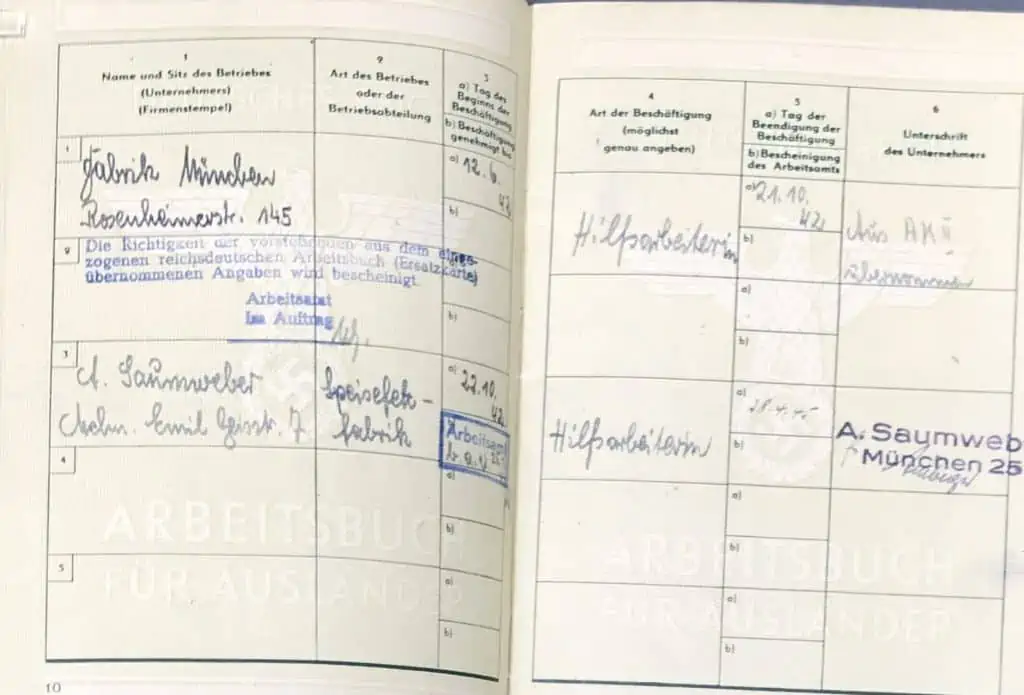 1
Name und Sitz des Betriebes
(Unternehmers)
(Firmenstempel)
2
Art des Betriebes
oder der
Betriebsabteilung
3
a) Tag des
Beginns der
Beschäftigung
b) Beschäftigung
genehmigt bis
1
Fabrik München
Rosenheimerstr. 145
a) 12.6.
42
b)
2
Die Richtigkeit der vorstehenden aus dem einge-
zogenen reichsdeutschen Arbeitsbuch (Ersatzkarte)
übernommenen Angaben wird bescheinigt
Arbeitsamt
Im Auftrag
b)
3
A. Saumweber
Emil Geisstr. 7
Speisefett-
fabrik
a) 22.10.
42
Arbeitsamt
4
a)
b)
5
a)
b)
ARBEITSBUCH
FÜR AUSLÄNDER
10
4
Art der Beschäftigung
(möglichst
genau angeben)
5
a) Tag der
Beendigung der
Beschäftigung
b) Bescheinigung
des Arbeitsamts
6
Unterschrift
des Unternehmers
Hilfsarbeiterin
a) 21.10.
42
b)
Aus AK
übernommen
a)
b)
Hilfsarbeiterin
a)
b)
A. Saymweb
München 25
a)
b)
a)
b)
ARBEITSBUCH
FÜR AUSLÄNDER